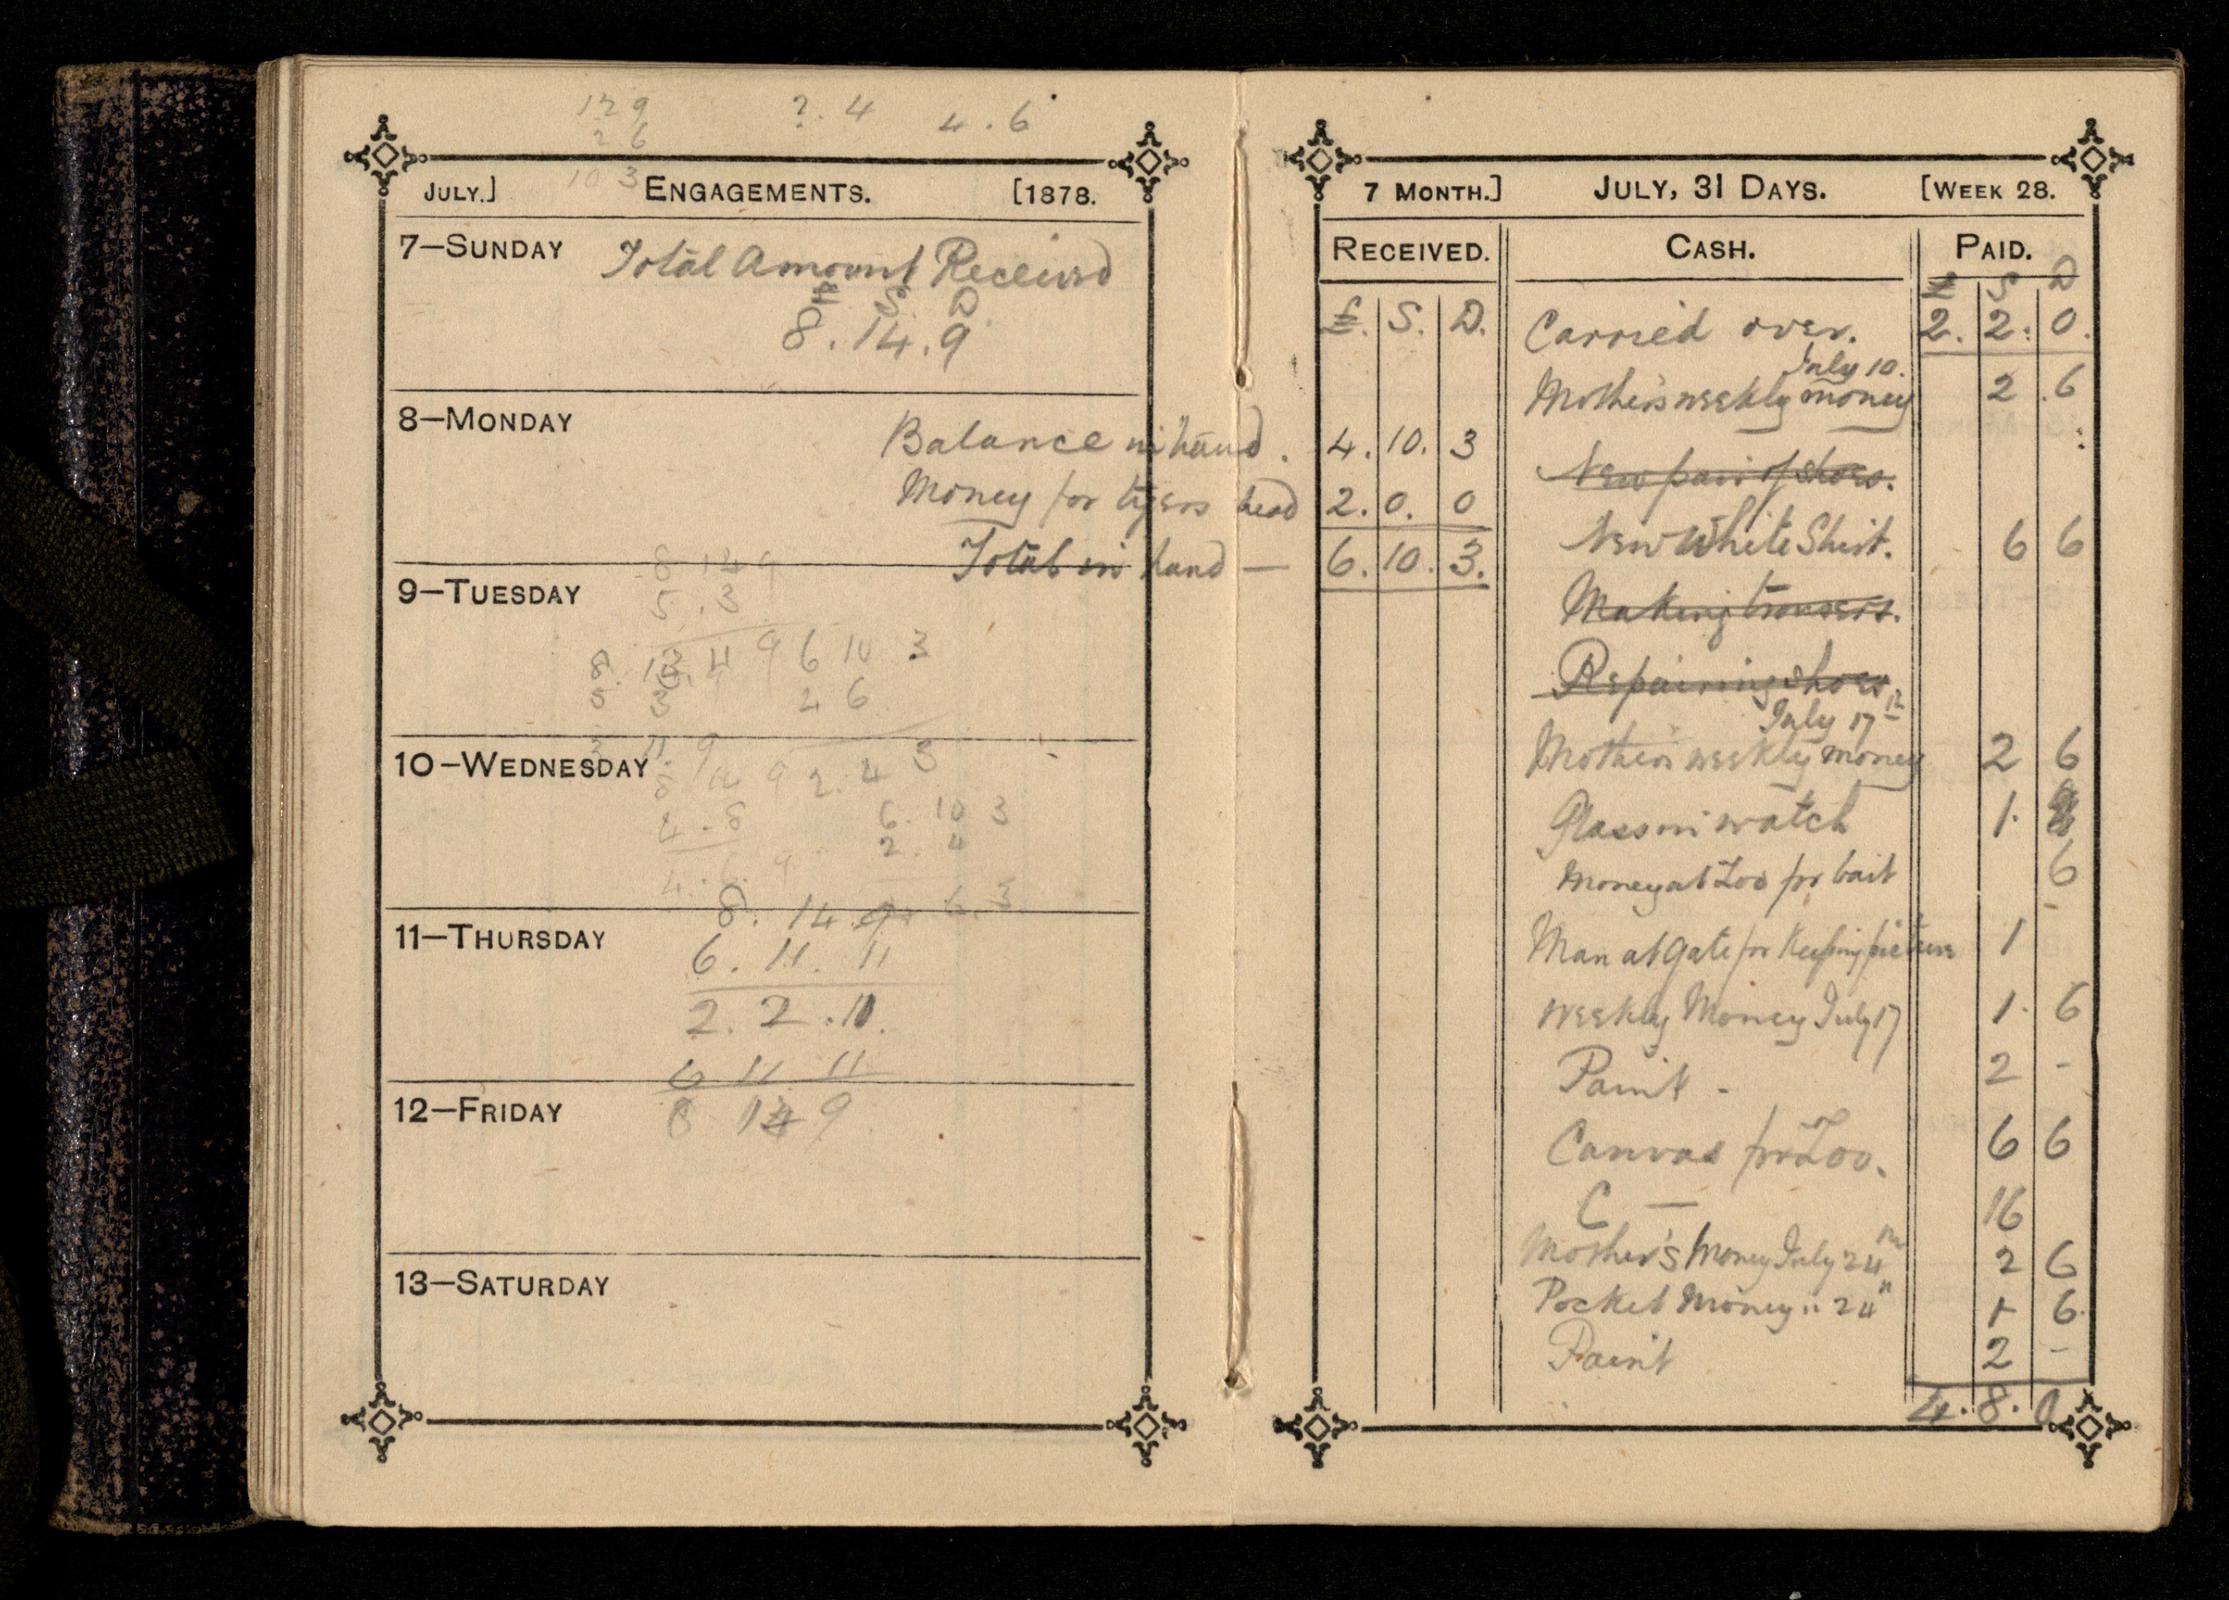 12 9
? . 4
4 . 6
2 6
10 3
JULY.] ENGAGEMENTS. [1878.
7—SUNDAY Total Amount Received
£ S D
8 . 14 . 9
8—MONDAY
Balance in hand . 4. 10. 3
Money for tigers head 2. 0. 0
Total in hand — 6. 10. 3.
8 14 9
9—TUESDAY
5 . 3
4 9 6 10 3
5 3 2 6
3 11. 9
10—WEDNESDAY
8 14 9 2. 4 3
4 . 8 6. 10 3
2. 4
4. 6. 9
8. 14. 9 6. 3
11—THURSDAY
6. 11. 11
2. 2. 10.
6 11 11
12—FRIDAY
8 14 9
13—SATURDAY
7 MONTH.] JULY, 31 DAYS. [WEEK 28.
RECEIVED. CASH. PAID.
£ S D
£. S. D. Carried over. 2. 2: 0.
July 10.
Mother's weekly money 2 . 6
New pair of shoes.
New White Shirt. 6 6
Making trousers.
Repairing shoes
July 17th
Mother's weekly money 2 6
Glass in watch 1.
Money at Zoo for bait 6
Man at Gate for Keeping picture 1
Weekly Money July 17 1. 6
Paint - 2 -
Canvas for Zoo. 6 6
C — 16
Mother's Money July 24th 2 6
Pocket Money " 24" 1 6.
Paint 2 -
4. 8. 0